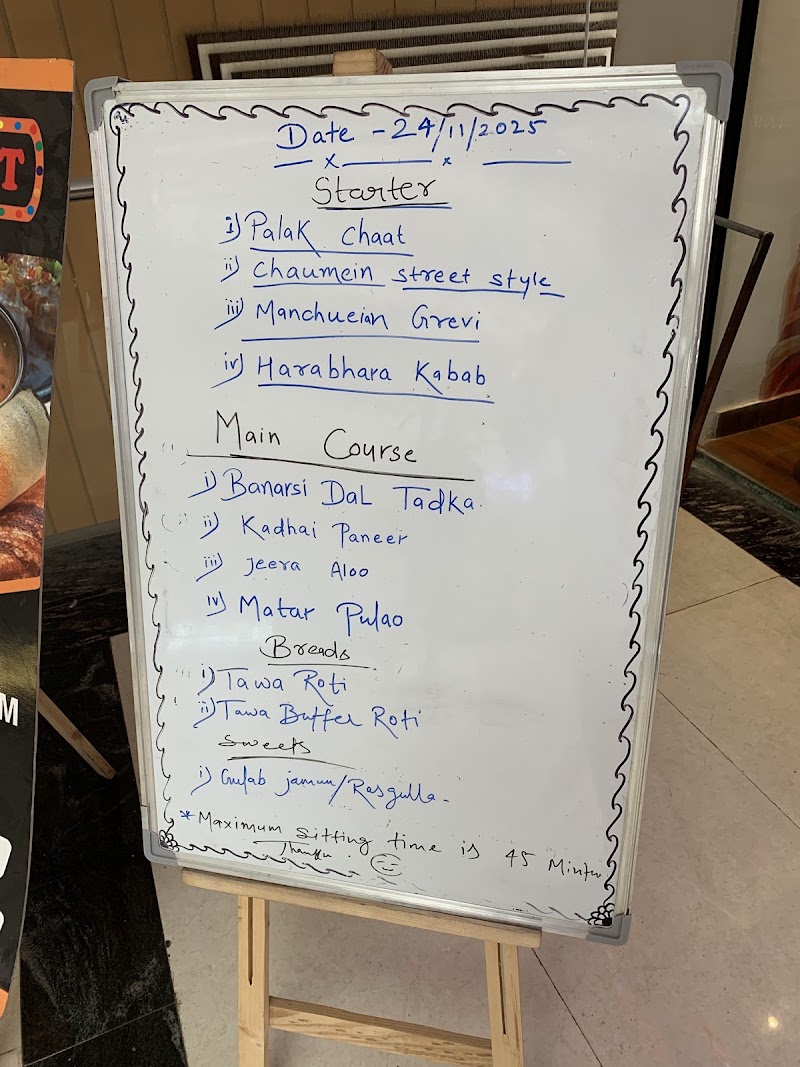 T
M
Date - 24/11/2025
Starter
i) Palak Chaat
ii) Chaumein street style
iii) Manchueian Grevi
iv) Harabhara Kabab
Main Course
i) Banarsi Dal Tadka.
ii) Kadhai Paneer
iii) Jeera Aloo
iv) Matar Pulao
Breads
i) Tawa Roti
ii) Tawa Buffer Roti
Sweets
i) Gulab jamun/Rasgulla-
*Maximum sitting time is 45